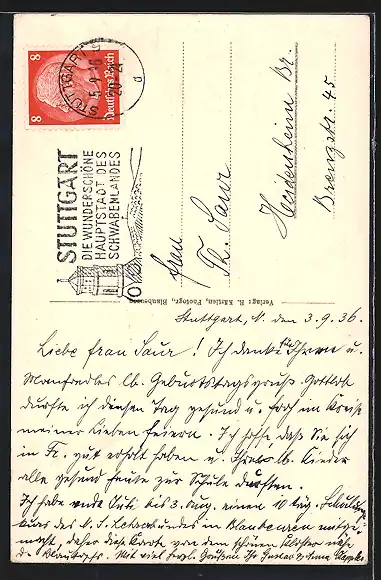 8 8
Deutsches Reich
STUTTGART
STUTTGART
DIE WUNDERSCHÖNE
HAUPTSTADT DES
SCHWABENLANDES
Frau
Th. Saur
Heidenheim Br.
Brenzstr. 45
Verlag: R. Kärsten, Photogr., Blaubeuren
Stuttgart, N. den 3.9.36.
Liebe Frau Saur! Ich danke für Ihren u.
Manfredles lb. Geburtstagsgruß. Gottlob
durfte ich diesen Tag gesund u. froh im Kreise
meiner Lieben feiern. Ich hoffe, daß Sie sich
in Fr. gut erholt haben u. Ihre lb. Kinder
alle gesund heute zur Schule durften.
Ich habe Ende Juli bis 3. Aug. einen 10 täg. Schulungs
kurs des N.S. Lehrerbundes in Blaubeuren mitge-
macht, daher diese Karte von dem schönen
Mit viel herzl. Grüßen Ihr Gustav & Anna